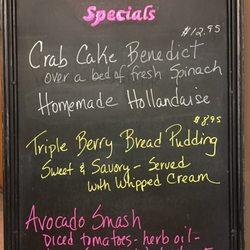 Specials
$12.95
Crab Cake Benedict
over a bed of fresh Spinach
Homemade Hollandaise
$8.95
Triple Berry Bread Pudding
Sweet & Savory - Served
with Whipped Cream
Avocado Smash
Diced tomatoes - herb oil -